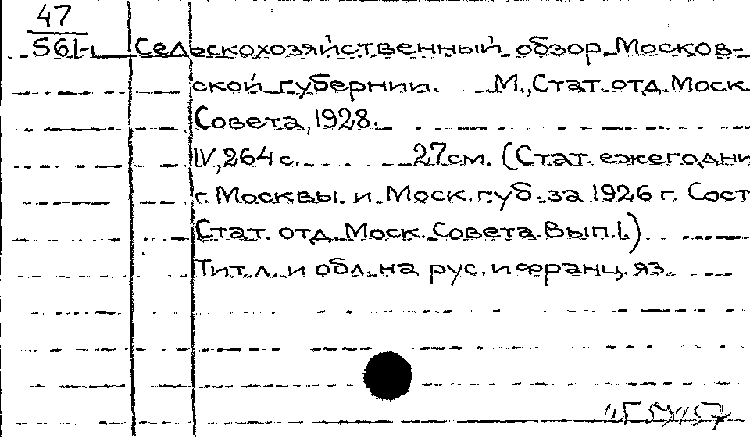 47
561-1 Сельскохозяйственный обзор Москов-
ской губернии. М., Стат. отд. Моск.
Совета, 1928.
IV, 264 с. 27см. (Стат. ежегодни
г. Москвы. и Моск. губ. за 1926 г. Сост
Стат. отд. Моск. Совета. Вып. 1.)
Тит. л. и обл. на рус. и франц. яз.